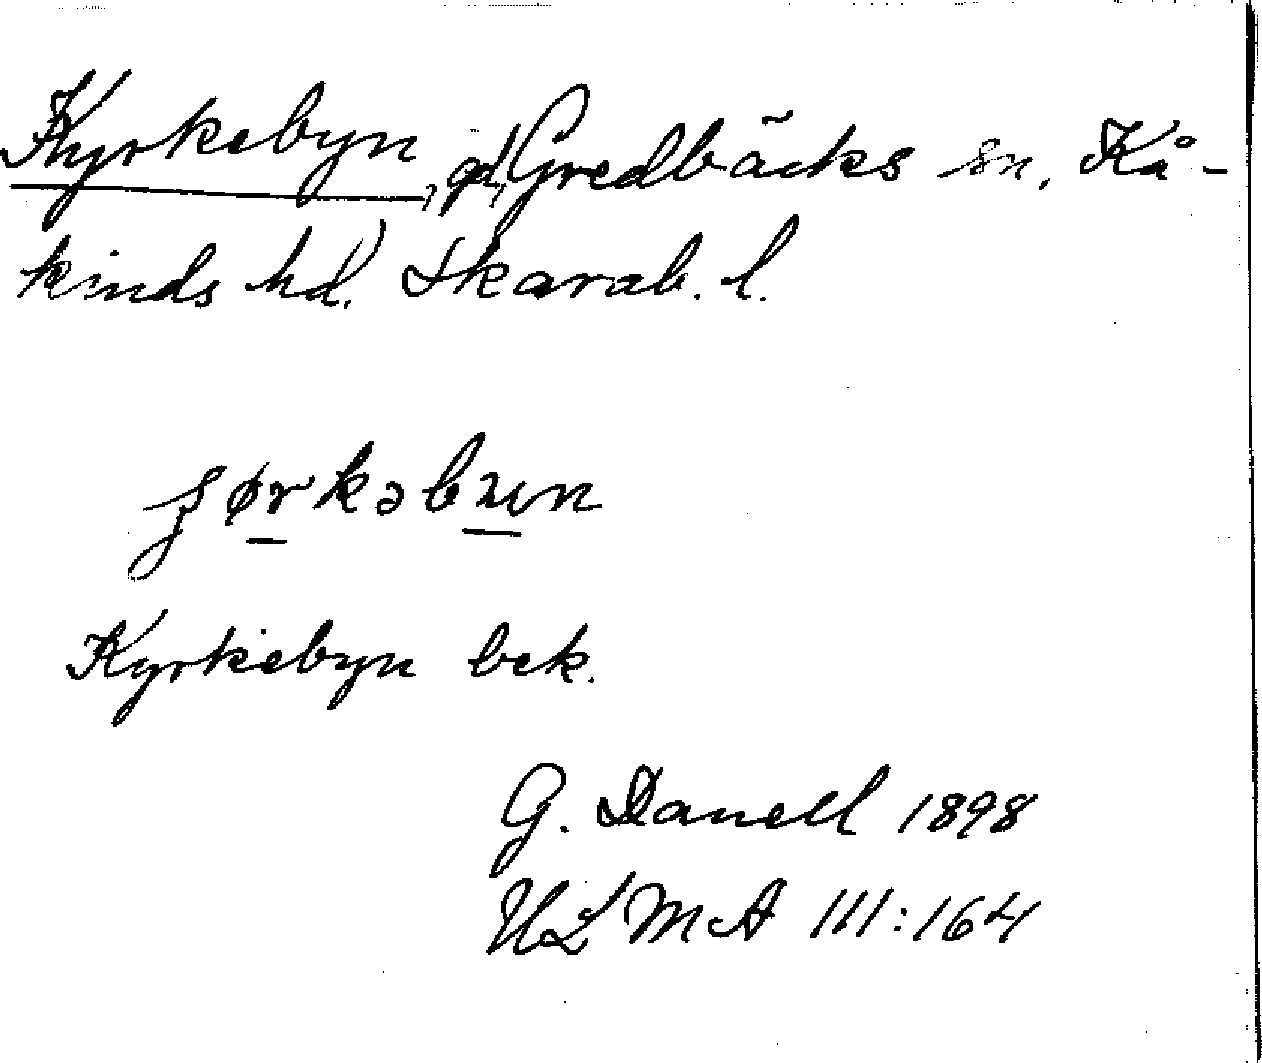 Kyrkebyn, gd, Gredbäcks sn, Kå-
kinds hd, Skarab. l.
Kyrkebyn bek.
G. Danell 1898
ULMA 111:164